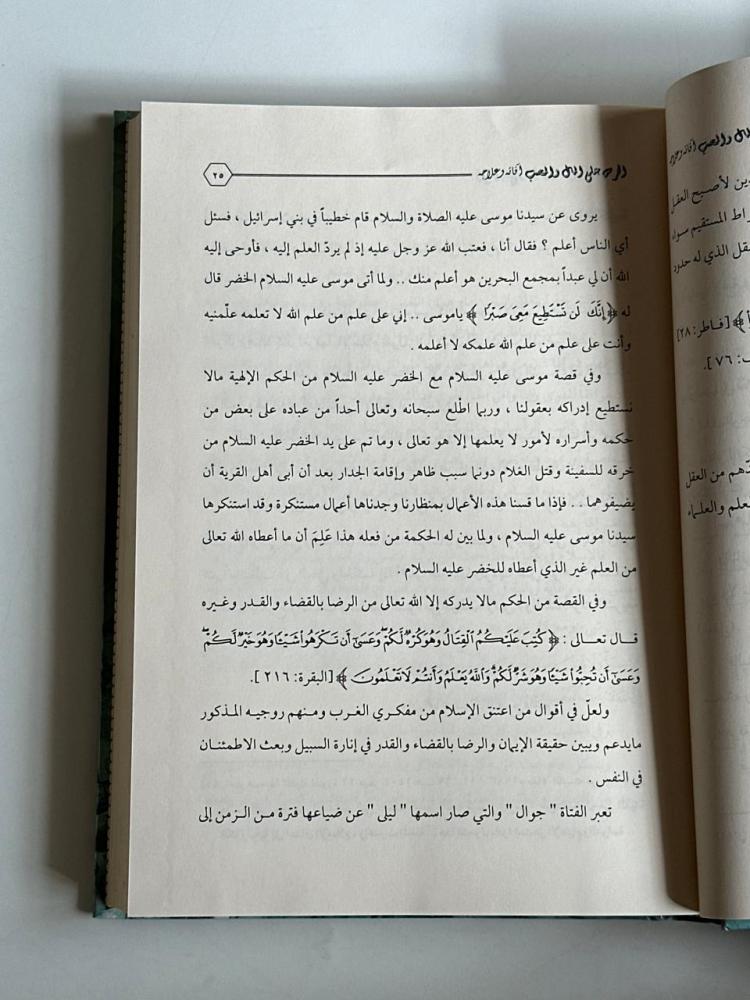 الحرص على المال والمنصب آفاته وعلاجه
٢٥
يروى عن سيدنا موسى عليه الصلاة والسلام قام خطيباً في بني إسرائيل ، فسئل
أي الناس أعلم ؟ فقال أنا ، فعتب الله عز وجل عليه إذ لم يردّ العلم إليه ، فأوحى إليه
الله أن لي عبداً بمجمع البحرين هو أعلم منك .. ولما أتى موسى عليه السلام الخضر قال
له ﴿ إِنَّكَ لَن تَسْتَطِيعَ مَعِيَ صَبْرًا ﴾ ياموسى .. إني على علم من علم الله لا تعلمه علّمنيه
وأنت على علم من علم الله علمكه لا أعلمه .
وفي قصة موسى عليه السلام مع الخضر عليه السلام من الحكم الإلهية مالا
نستطيع إدراكه بعقولنا ، وربما اطْلع سبحانه وتعالى أحداً من عباده على بعض من
حكمه وأسراره لأمور لا يعلمها إلا هو تعالى ، وما تم على يد الخضر عليه السلام من
خرقه للسفينة وقتل الغلام دونما سبب ظاهر وإقامة الجدار بعد أن أبى أهل القرية أن
يضيفوهما .. فإذا ما قسنا هذه الأعمال بمنظارنا وجدناها أعمال مستنكرة وقد استنكرها
سيدنا موسى عليه السلام ، ولما بين له الحكمة من فعله هذا عَلِمَ أن ما أعطاه الله تعالى
من العلم غير الذي أعطاه للخضر عليه السلام .
وفي القصة من الحكم مالا يدركه إلا الله تعالى من الرضا بالقضاء والقدر وغيره
قال تعالى : ﴿ كُتِبَ عَلَيْكُمُ الْقِتَالُ وَهُوَ كُرْهٌ لَّكُمْ ۖ وَعَسَىٰ أَن تَكْرَهُوا شَيْئًا وَهُوَ خَيْرٌ لَّكُمْ ۖ
وَعَسَىٰ أَن تُحِبُّوا شَيْئًا وَهُوَ شَرٌّ لَّكُمْ ۗ وَاللَّهُ يَعْلَمُ وَأَنتُمْ لَا تَعْلَمُونَ ﴾ [البقرة: ٢١٦ ].
ولعلّ في أقوال من اعتنق الإسلام من مفكري الغرب ومنهم روجيه المذكور
مايدعم ويبين حقيقة الإيمان والرضا بالقضاء والقدر في إنارة السبيل وبعث الاطمئنان
في النفس .
تعبر الفتاة " جوال " والتي صار اسمها " ليلى " عن ضياعها فترة من الزمن إلى
المال والمنصب آفاته وعلاجه
ين لأصبح العقل
راط المستقيم سواء
عقل الذي له حدود
﴾ [فاطر: ٢٨]
ف: ٧٦ ].
دّهم من العقل
لعلم والعلماء